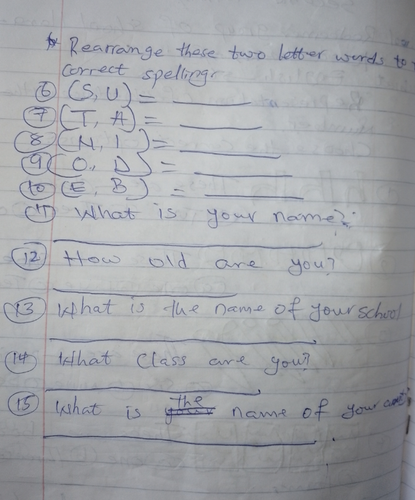 Rearrange these two letter words to
correct spelling.
6 (S, U) =
7 (T, A) =
8 (N, I) =
9 (O, D) =
10 (E, B) =
11 What is your name?
12 How old are you?
13 What is the name of your school
14 What class are you?
15 What is the name of your